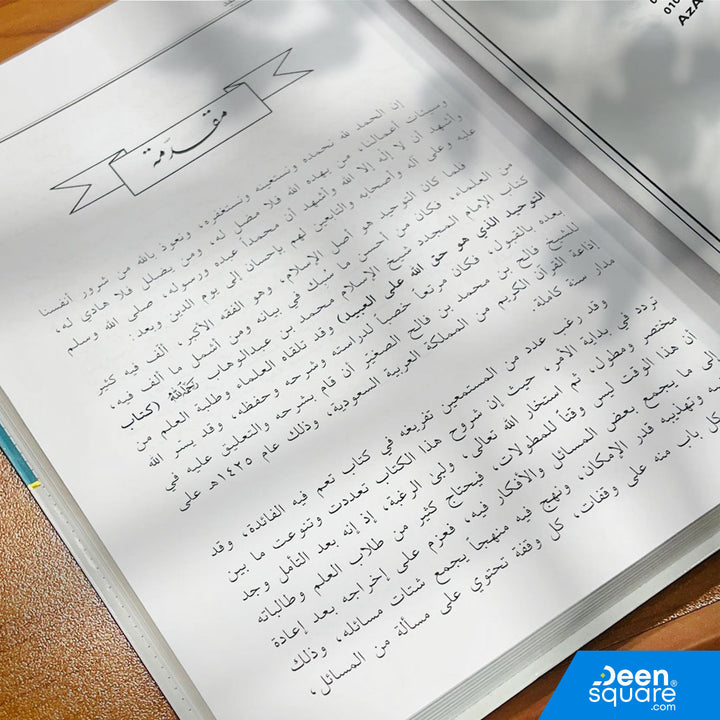 مقدمة
إن الحمد لله نحمده ونستعينه ونستغفره، ونعوذ بالله من شرور أنفسنا
وسيئات أعمالنا، من يهده الله فلا مضل له، ومن يضلل فلا هادي له،
وأشهد أن لا إله إلا الله وأشهد أن محمداً عبده ورسوله، صلى الله وسلم
عليه وعلى آله وأصحابه والتابعين لهم بإحسان إلى يوم الدين وبعد:
فلما كان التوحيد هو أصل الإسلام، وهو الفقه الأكبر، ألف فيه كثير
من العلماء، فكان من أحسن ما سُبك في بيانه ومن أشمل ما ألف فيه،
كتاب الإمام المجدد شيخ الإسلام محمد بن عبدالوهاب رحمه الله (كتاب
التوحيد الذي هو حق الله على العبيد) وقد تلقاه العلماء وطلبة العلم من
بعده بالقبول، فكان مرتعاً خصباً لدراسته وشرحه وحفظه، وقد يسّر الله
للشيخ فالح بن محمد بن فالح الصغيّر أن قام بشرحه والتعليق عليه في
إذاعة القرآن الكريم من المملكة العربية السعودية، وذلك عام ١٤٢٥هـ على
مدار سنة كاملة.
وقد رغب عدد من المستمعين تفريغه في كتاب تعم فيه الفائدة، وقد
تردد في بداية الأمر، حيث إن شروح هذا الكتاب تعددت وتنوعت ما بين
مختصر ومطول، ثم استخار الله تعالى، ولبى الرغبة، إذ إنه بعد التأمل وجد
أن هذا الوقت ليس وقتاً للمطولات، فيحتاج كثير من طلاب العلم وطالباته
إلى ما يجمع بعض المسائل والأفكار فيه، فعزم على إخراجه بعد إعادة
وتهذيبه قدر الإمكان، ونهج فيه منهجاً يجمع شتات مسائله، وذلك
كل باب منه على وقفات، كل وقفة تحتوي على مسألة من المسائل،
Deen
square®
.com